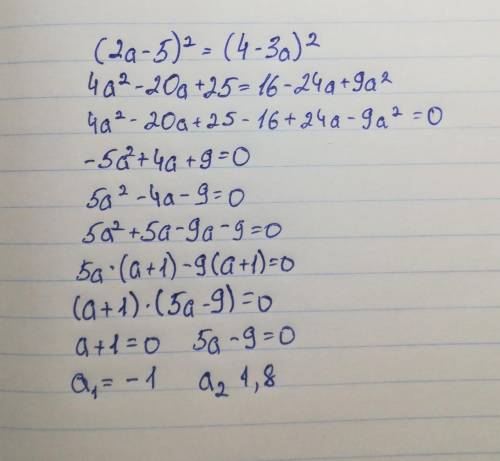 (2a-5)² = (4-3a)²
4a²-20a+25=16-24a+9a²
4a²-20a+25-16+24a-9a²=0
-5a²+4a+9=0
5a²-4a-9=0
5a²+5a-9a-9=0
5a·(a+1)-9(a+1)=0
(a+1)·(5a-9)=0
a+1=0 5a-9=0
a₁=-1 a₂ 1,8